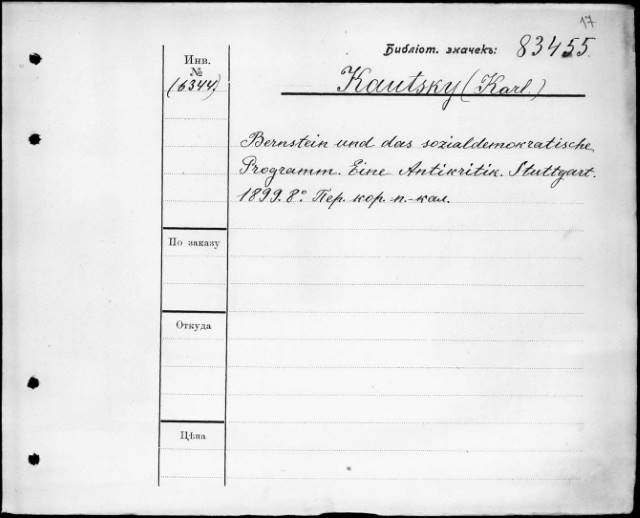 17
Библіот. значекъ: 83455.
Инв.
№
(6344)
Kautsky (Karl.)
Bernstein und das sozialdemokratische
Programm. Eine Antikritik. Stuttgart.
1899. 8º. Пер. кор. п.-кал.
По заказу
Откуда
Цѣна